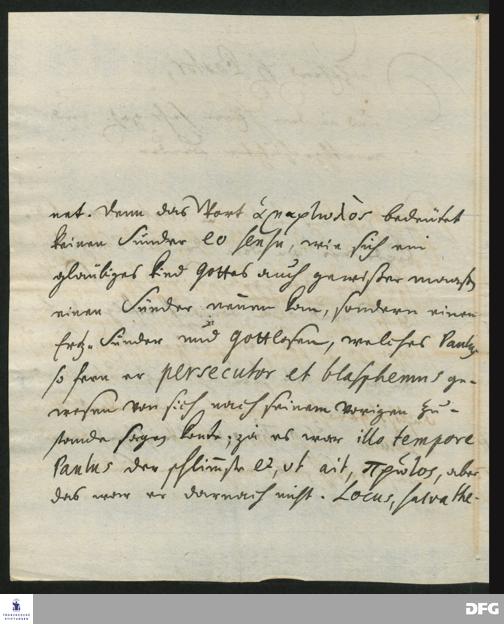 net. Denn das Wort ἁμαρτωλὸς bedeütet
keinen Sünder eo sensu, wie sich ein
glaübiges kind Gottes auch gewißer maaßen
einen Sünder nennen kan, sondern einen
Ertz-Sünder und Gottlosen, welches Paulus
so fern er persecutor et blasphemus ge-
wesen von sich nach seinem vorigen Zu-
stande sagen konte; ja es war illo tempore
Paulus der schlimste et, ut ait, πρῶτος, aber
das war er darnach nicht. Locus, salva the-
FRANCKESCHE
STIFTUNGEN
DFG